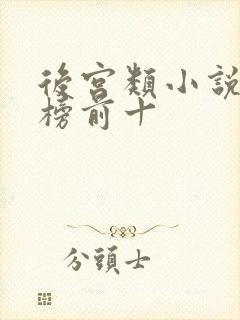 後宮類小說
榜前十
分頭士